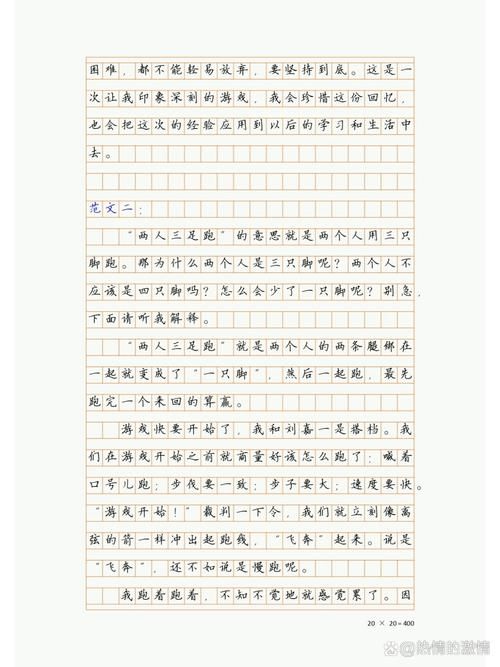 困难，都不能轻易放弃，要坚持到底。这是一
次让我印象深刻的游戏，我会珍惜这份回忆，
也会把这次的经验应用到以后的学习和生活中
去。
范文二：
“两人三足跑”的意思就是两个人用三只
脚跑。那为什么两个人是三只脚呢？两个人不
应该是四只脚吗？怎么会少了一只脚呢？别急，
下面请听我解释。
“两人三足跑”就是两个人的两条腿绑在
一起就变成了“一只脚”，然后一起跑，最先
跑完一个来回的算赢。
游戏快要开始了，我和刘嘉一是搭档。我
们在游戏开始之前就商量好该怎么跑了：喊着
口号儿跑；步伐要一致；步子要大；速度要快。
“游戏开始！”裁判一下令，我们就立刻像离
弦的箭一样冲出起跑线，“飞奔”起来。说是
“飞奔”，还不如说是慢跑呢。
我跑着跑着，不知不觉地就感觉累了。因
20 × 20=400
@热情的激情